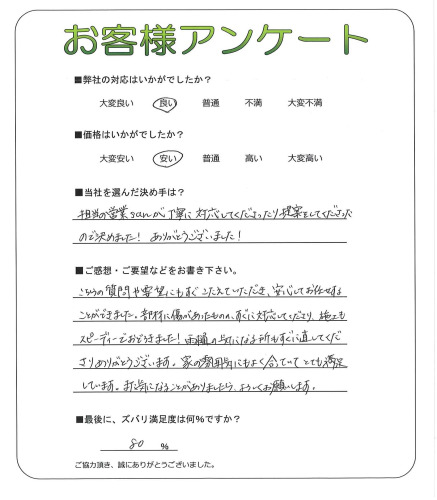 お客様アンケート
■弊社の対応はいかがでしたか？
大変良い 良い 普通 不満 大変不満
■価格はいかがでしたか？
大変安い 安い 普通 高い 大変高い
■当社を選んだ決め手は？
担当の営業sanが丁寧に対応してくださったり提案をしてくださった
ので決めました！ ありがとうございました！
■ご感想・ご要望などをお書き下さい。
こちらの質問や要望にもすぐこたえていただき、安心してお任せする
ことができました。部材に傷があったものの、すぐに対応してくださり、施工も
スピーディーでおどろきました！雨樋の気になる所もすぐに直してくだ
さりありがとうございます。家の雰囲気にもよく合っていてとても満足
しています。また気になることがありましたら、よろしくお願いします。
■最後に、ズバリ満足度は何%ですか？
80 %
ご協力頂き、誠にありがとうございました。